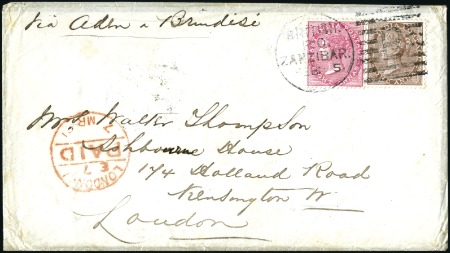 Via Aden & Brindisi
ZANZIBAR.
5
Mrs Walter Thompson
Ashbourne House
174 Holland Road
Kensington W
London
LONDON
E 7
PAID
7 MR